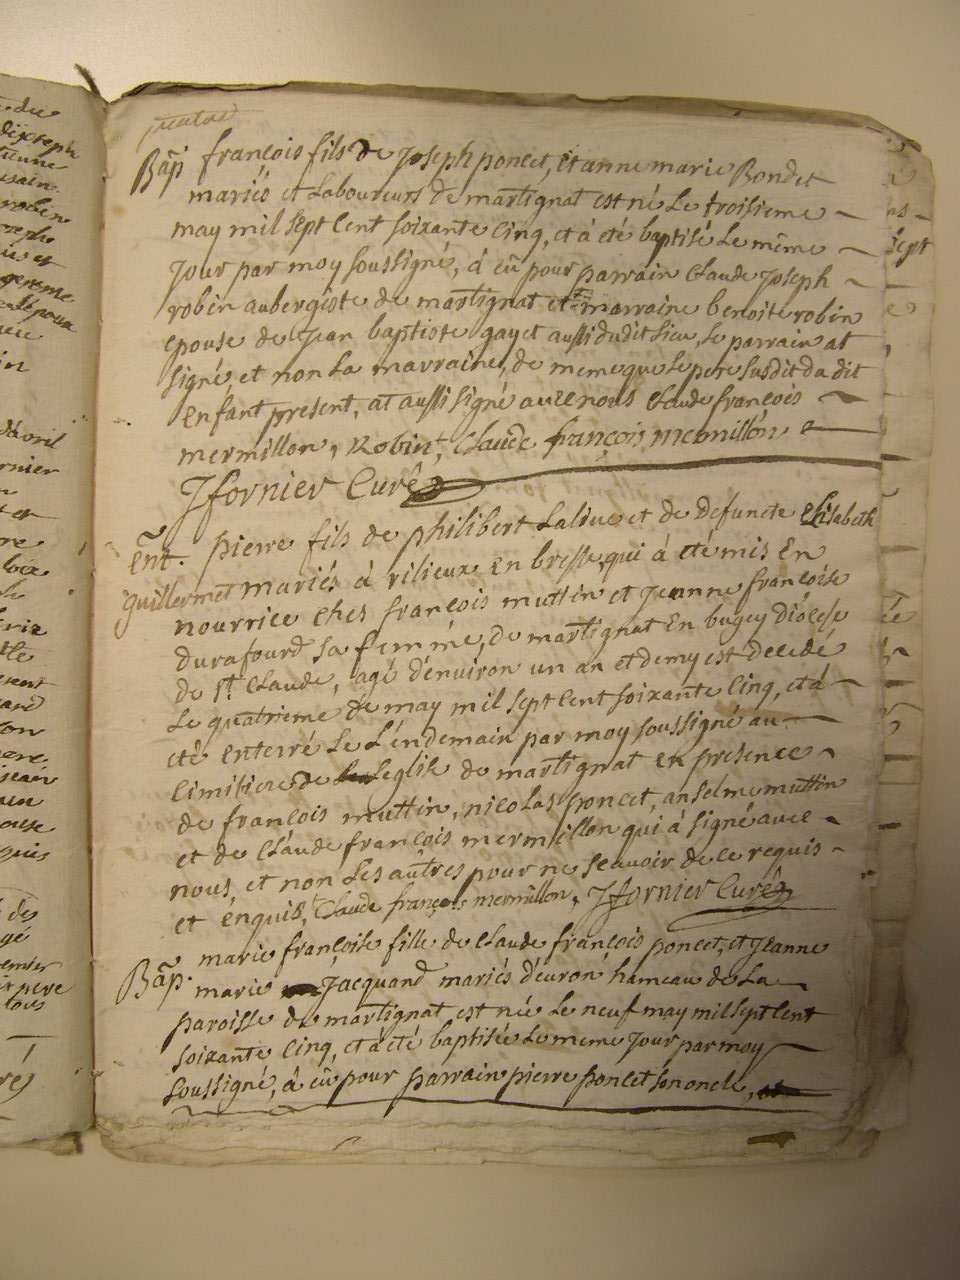 quatre
Bap françois fils de Joseph poncet, et anne marie Bondet
mariés et Laboureurs de martignat est né Le troisieme
may mil sept cent soixante cinq, et à été baptisé Le même
Jour par moy soussigné, à eû pour parrain Claude Joseph
robin aubergiste de martignat et marraine benoite robin
epouse de Jean baptiste gayet aussi dudit Lieu, Le parrain at
signé et non La marraine, de meme que Le pere susdit du dit
enfant present, at aussi signé avec nous Claude françois
mermillon, Robin, Claude françois mermillon
J fornier Curé
Ent. pierre fils de philibert Lalive et de defuncte Elisabeth
guillermet mariés à rilieux en bresse, qui à été mis en
nourrice ches françois muttin et Jeanne françoise
durafourd sa femme, de martignat en bugey Diocese
de St. Claude, agé d'environ un an et demy est decedé
Le quatrieme de may mil sept cent soixante cinq, et à
été enterré Le L'endemain par moy soussigné au
cimitiere de Leglise de martignat en presence
de françois muttin, nicolas poncet, anselme muttin
et de Claude françois mermillon qui à signé avec
nous, et non Les autres pour ne scavoir de ce requis
et enquis, Claude françois mermillon, J fornier Curé
marie françoise fille de Claude françois poncet, et Jeanne
Bap. marie Jacquand mariés d'euron hameau de La
paroisse de martignat est née Le neuf may mil sept cent
soixante cinq, et à été baptisée Le meme Jour par moy
soussigné, à eû pour parrain pierre poncet son oncle,